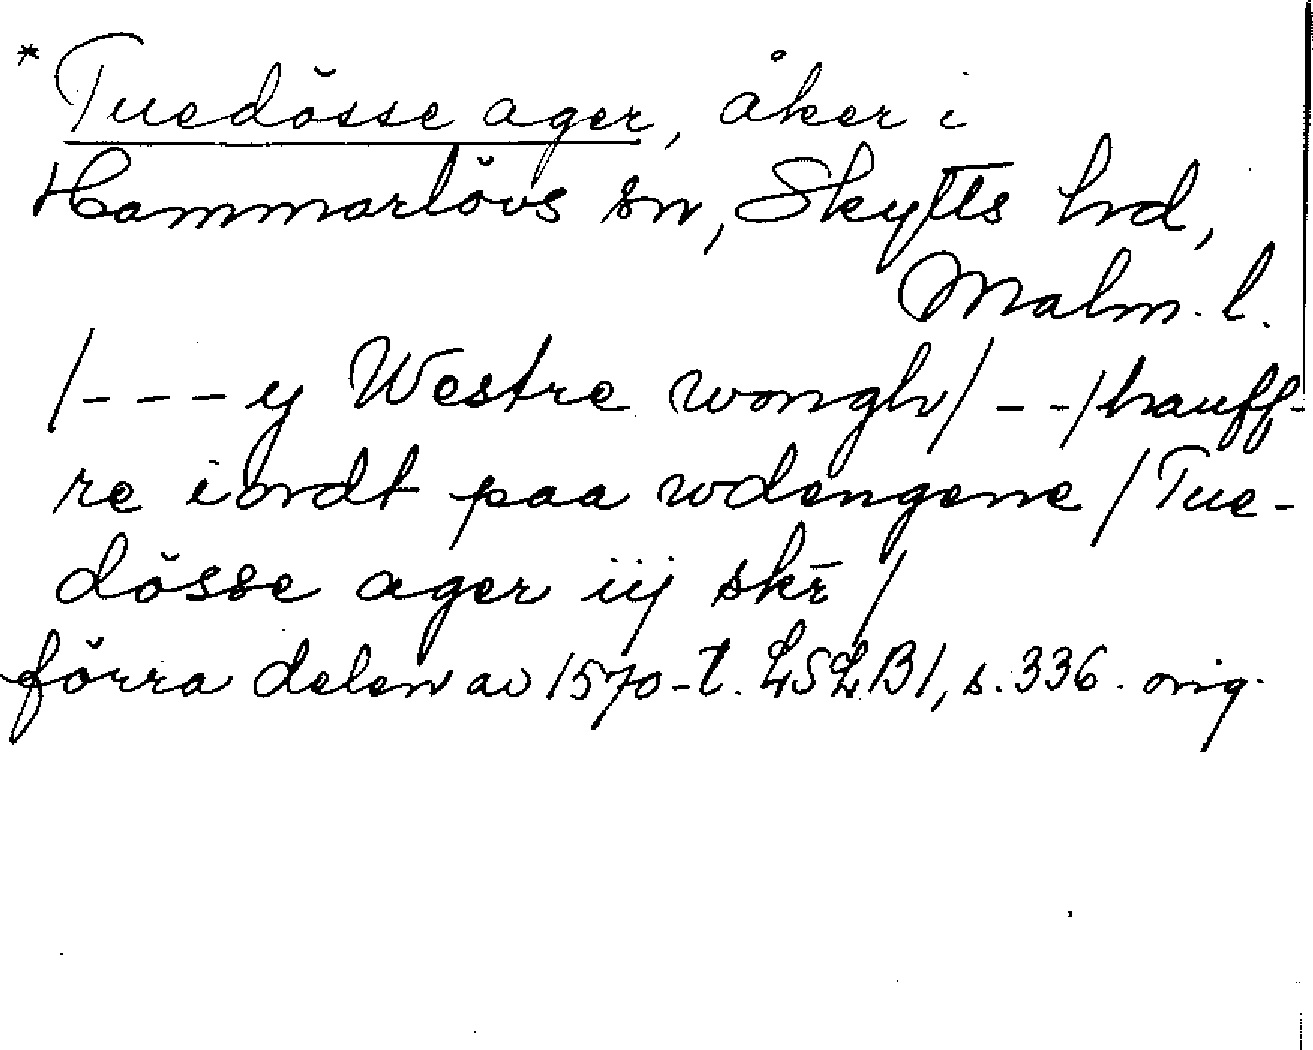 * Tuedösse ager, åker i
Hammarlövs sn, Skytts hd,
Malm. l.
/- - - y Westre wongh/ - -/hauff-
re iordt paa wdengene / Tue-
dösse ager iij skr̄ /
förra delen av 1570-t. LSLB1, s. 336. orig.